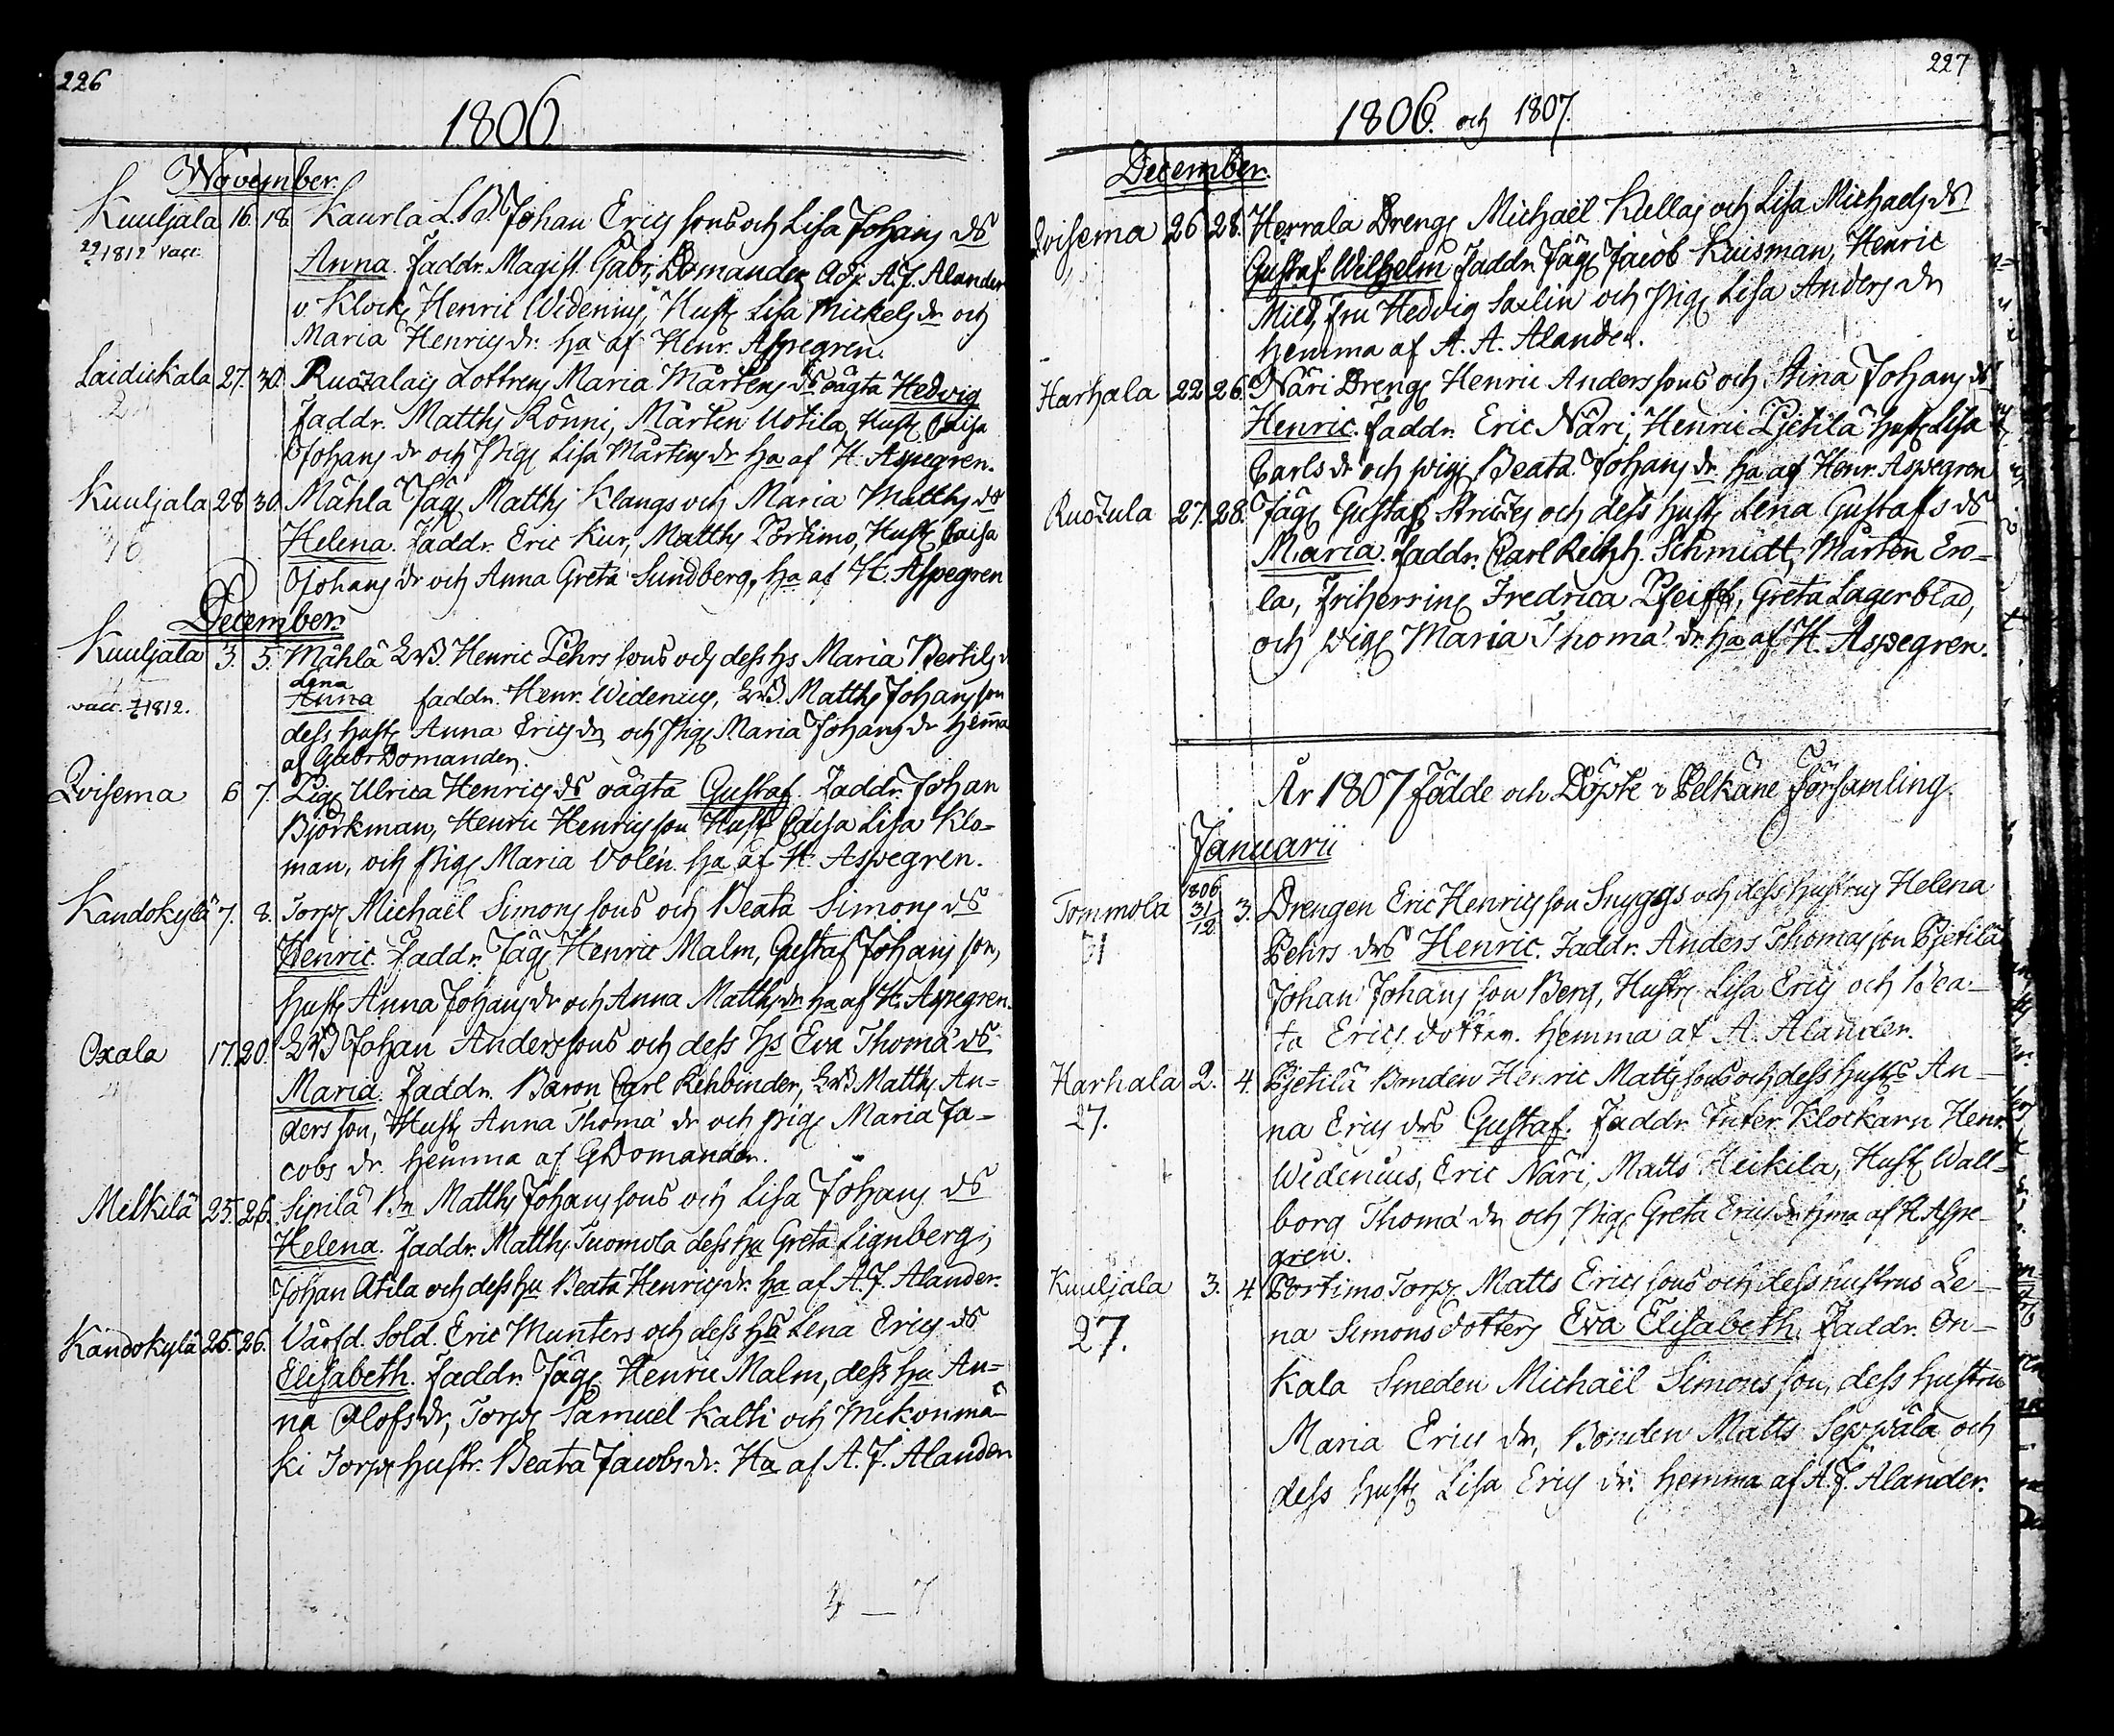 226
1806.
November.
Kuuljala 16. 18. Kaurla L.B. Johan Erics sons och Lisa Johans ds
29/2 1812 vacc. Anna. Faddr. Magist. Gabr. Domander Adj. A.J. Alander
v. Klock. Henric Widenius, Hust. Lisa Mickels dr och
Maria Henrics dr. ha af Henr. Aspegren.
Laidickala 27. 30. Ruozalais dottrens Maria Mårtens ds oägta Hedvig
Faddr. Matths Rönni, Mårten Uotila, Hust. Caisa
Johans dr och Pig. Lisa Mårtens dr ha af H. Aspegren.
Kuuljala 28 30. Mählä Jäg. Matths Klangs och Maria Matths ds
Helena. Faddr. Eric Kur, Matths Portimo, Hust. Caisa
Johans dr och Anna Greta Sundberg, ha af H. Aspegren
December.
Kuuljala 3. 5. Mählä Henric Pehrs sons och dess hs Maria Bertils
Lena
vacc. 1812. Anna faddr. Henr. Widenius, Matths Johans son
dess hust. Anna Erics dr och Pig. Maria Johans dr Hemma
af Gabr Domander.
Qvisema 6 7. Pig. Ulrica Henrics ds oägta Gustaf. Faddr. Johan
Björkman, Henric Henrics son Hust. Caisa Lisa Klo=
man, och Pig. Maria Volén ha af H. Aspegren.
Kandokylä 7. 8. Torp. Michaël Simons sons och Beata Simons ds
Henric. Faddr. Jäg. Henric Malm, Gustaf Johans son,
Hust. Anna Johans dr och Anna Matths dr ha af H. Aspegren.
Oxala 17. 20. Johan Anders sons och dess Hs Eva Thomæ ds
Maria. Faddr. Baron Carl Rehbinder, Matths An=
ders son, Hust. Anna Thomæ dr och Pig. Maria Ja=
cobs dr. hemma af G Domander.
Melkilä 25. 26. Sipilä Bn Matths Johans sons och Lisa Johans ds
Helena. Faddr. Matths Tuomola dess hu Greta Lignberg,
Johan Atila och dess hu Beata Henrics dr. ha af A.J. Alander.
Kandokylä 25. 26. Vårfd. Sold. Eric Munters och dess hs Lena Erics ds
Elisabeth. Faddr. Jäg. Henric Malm, dess hu An=
na Olofs dr, Torp. Samuel Kalki och Mikonmä=
ki Torp. hustr. Beata Jacobs dr. Ha af A.J. Alander
4 — 7
227
1806. och 1807.
December.
Qvisema 26 28. Herrala Dreng. Michaël Kullas och Lisa Michaels ds
Gustaf Wilhelm Faddr. Jäg. Jacob Kuisman, Henric
Mield, Fru Hedvig Saxlin och Pig. Lisa Anders dr
hemma af A. A. Alander.
Harhala 22 26. Näri Dreng. Henric Anders sons och Stina Johans ds
Henric. Faddr. Eric Näri, Henric Pjetilä Hust. Lisa
Carls dr och pig. Beata Johans dr. ha af Henr. Aspegren
Ruozula 27. 28. Jäg. Gustaf och dess hust. Lena Gustafs ds
Maria. faddr. Carl Schmidt, Mårten Ero=
la, Friherrin. Fredrica Pfeiff, Greta Lagerblad,
och pig. Maria Thomæ dr. ha af H. Aspegren.
År 1807 Födde och Döpte i Pelkäne Församling.
Januarii
Tommola 1806 31/12 3. Drengen Eric Henrics son Snyggs och dess hustrus Helena
31 Pehrs drs Henric. Faddr. Anders Thomas son Pjetilä
Johan Johans son Berg, Hustr. Lisa Erics och Bea=
ta Erics dotter. Hemma af A. Alander.
Harhala 2. 4. Pjetilä Bonden Henric Matts sons och dess husts An=
27. na Erics drs Gustaf. Faddr. Inter. Klockarn Henr.
Widenius, Eric Näri, Matts Heikila, Hust. Wall=
borg Thomæ dr och Pig. Greta Erics dr. hma af H Aspe=
gren.
Kuuljala 3. 4. Portimo Torp. Matts Erics sons och dess hustrus Le=
27. na Simons dotters Eva Elisabeth. Faddr. On=
kala Smeden Michaël Simons son, dess hustru
Maria Erics dr, Bonden Matts Seppälä och
dess hust. Lisa Erics dr. hemma af A.J. Alander.